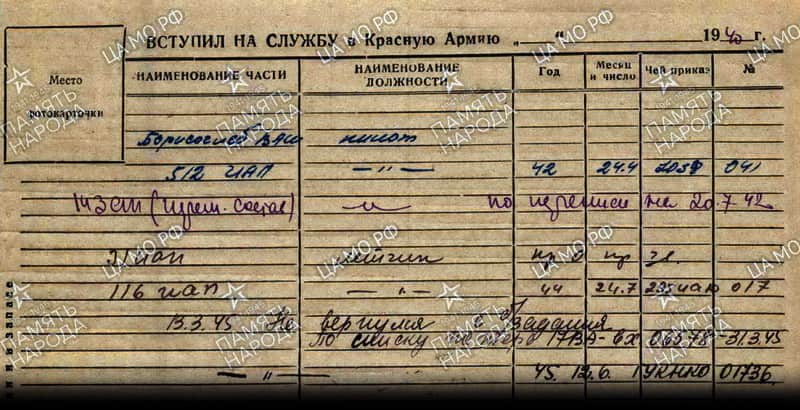 ВСТУПИЛ НА СЛУЖБУ в Красную Армию „ “ 1940 г.
Место фотокарточки
НАИМЕНОВАНИЕ ЧАСТИ НАИМЕНОВАНИЕ ДОЛЖНОСТИ Год Месяц и число Чей приказ №
Борисоглеб ВАШ пилот
512 ИАП — „ — 42 24.4 041
(перем. состав) — „ — по переписи на 20.7.42
летчик
116 иап — „ — 44 24.7 295 иад 017
13.3.45 Не вернулся с б/задания
По списку потерь 17ВА - вх 06578 - 31.3.45
— „ — 45. 12.6. 1УКННО 01736.
и в запасе
ЦА МО РФ
ПАМЯТЬ НАРОДА